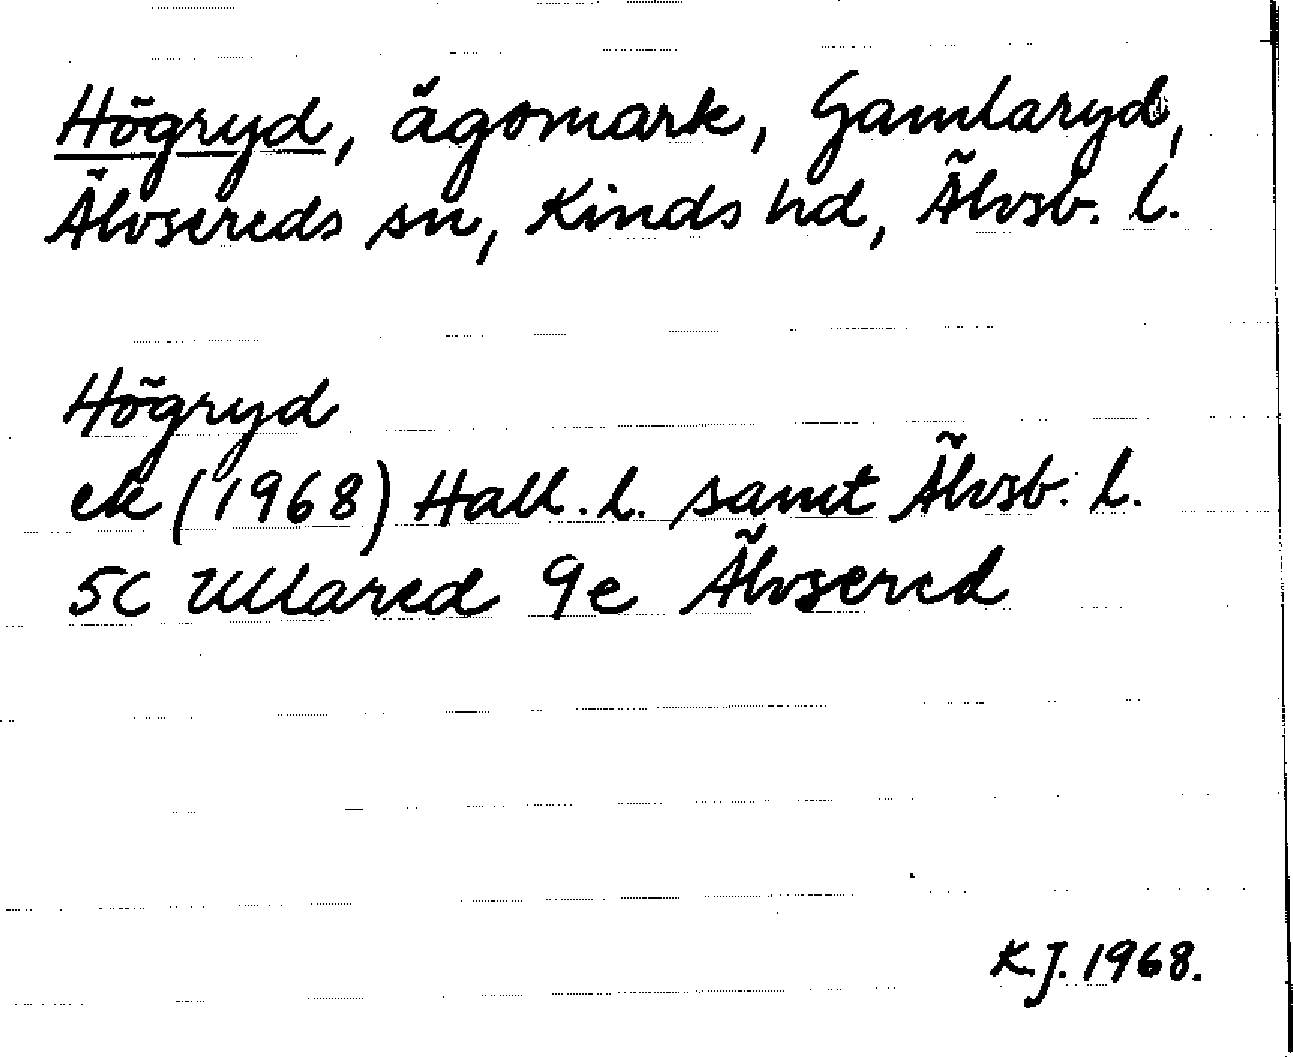 Högryd, ägomark, Gamlaryd,
Älvsereds sn, Kinds hd, Älvsb. l.
Högryd
ek (1968) Hall. l. samt Älvsb. l.
5C Ullared 9e Älvsered
K.J. 1968.